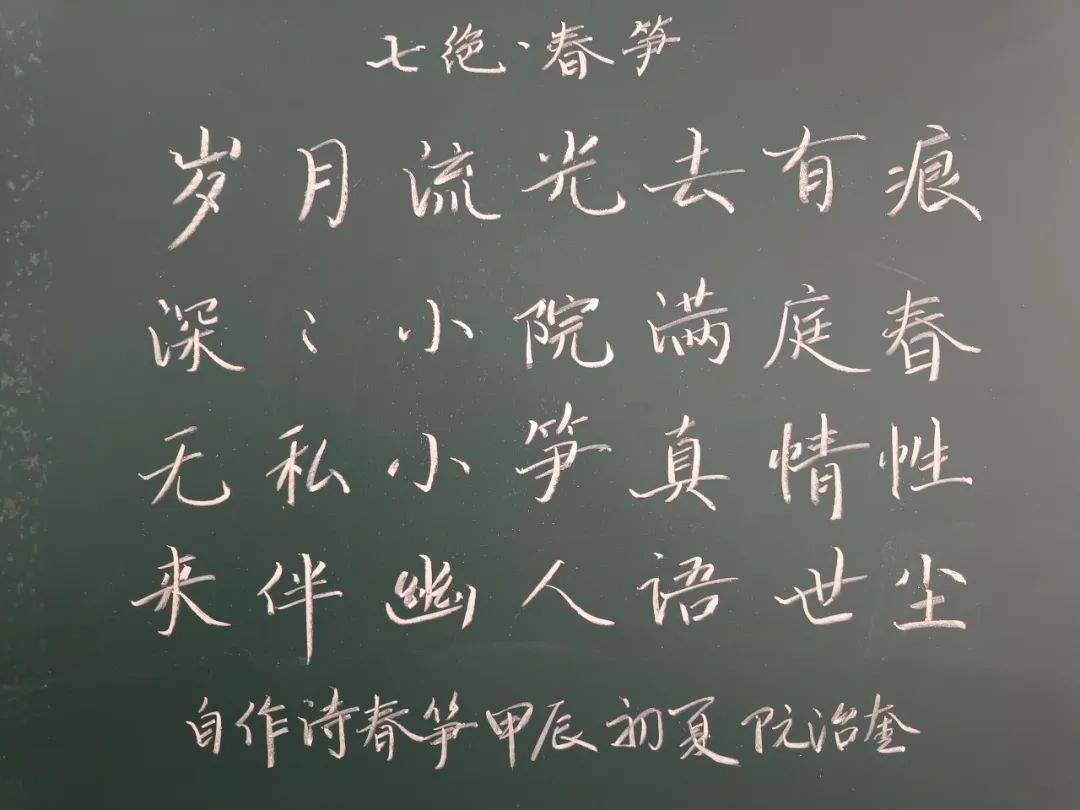 七绝·春笋
岁月流光去有痕
深〻小院满庭春
无私小笋真情性
来伴幽人语世尘
自作诗春笋甲辰初夏阮治奎